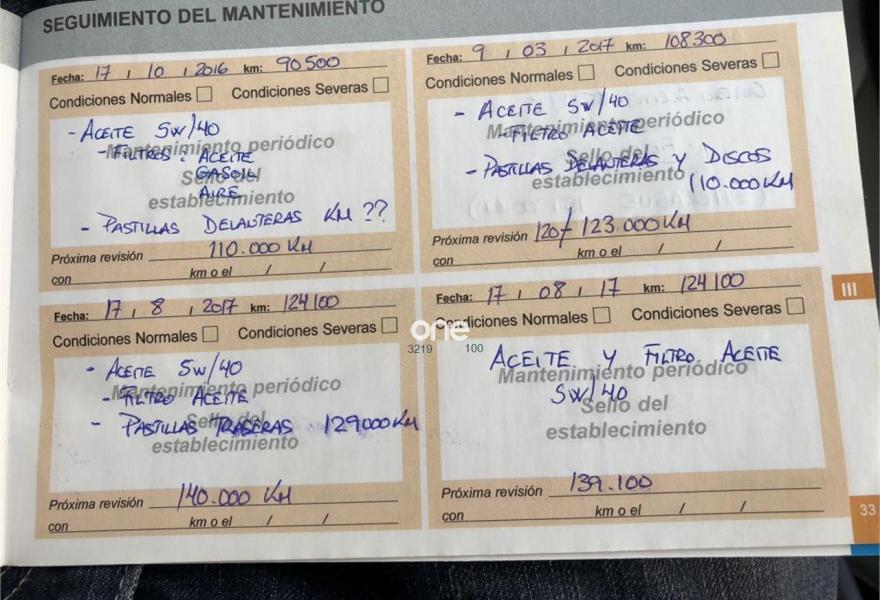 SEGUIMIENTO DEL MANTENIMIENTO
Fecha: 17 / 10 / 2016 km: 90500
Condiciones Normales Condiciones Severas
- ACEITE 5W/40
Mantenimiento periódico
- FILTROS : ACEITE
GASOIL
Sello del
AIRE
establecimiento
- PASTILLAS DELANTERAS KM ??
Próxima revisión 110.000 KM
con km o el / /
Fecha: 9 / 03 / 2017 km: 108300
Condiciones Normales Condiciones Severas
- ACEITE 5W/40
Mantenimiento periódico
- FILTRO ACEITE
Sello del
- PASTILLAS DELANTERAS Y DISCOS
establecimiento
(110.000KM
Próxima revisión 120/ 123.000KM
con km o el / /
Fecha: 17 / 8 / 2017 km: 124100
Condiciones Normales Condiciones Severas
- ACEITE 5W/40
Mantenimiento periódico
- FILTRO ACEITE
Sello del
- PASTILLAS TRASERAS 129000KM
establecimiento
Próxima revisión 140.000 KM
con km o el / /
Fecha: 17 / 08 / 17 km: 124100
Condiciones Normales Condiciones Severas
ACEITE Y FILTRO ACEITE
Mantenimiento periódico
5W/40
Sello del
establecimiento
Próxima revisión 139.100
con km o el / /
one
3219 100
III
33